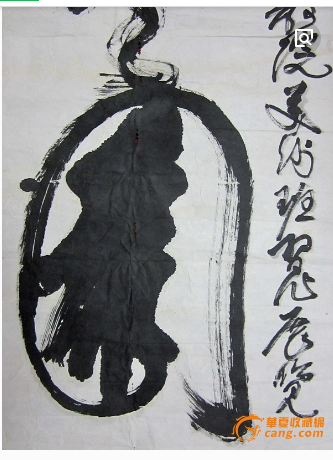 院美術班習作展覽
華夏收藏網
cang.com